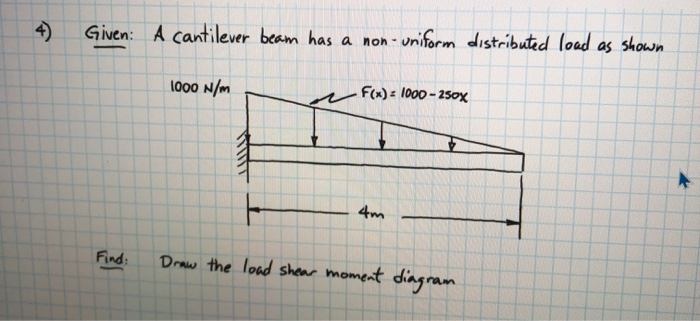 4) Given: A cantilever beam has a non-uniform distributed load as shown
1000 N/m
F(x) = 1000 - 250x
4m
Find: Draw the load shear moment diagram